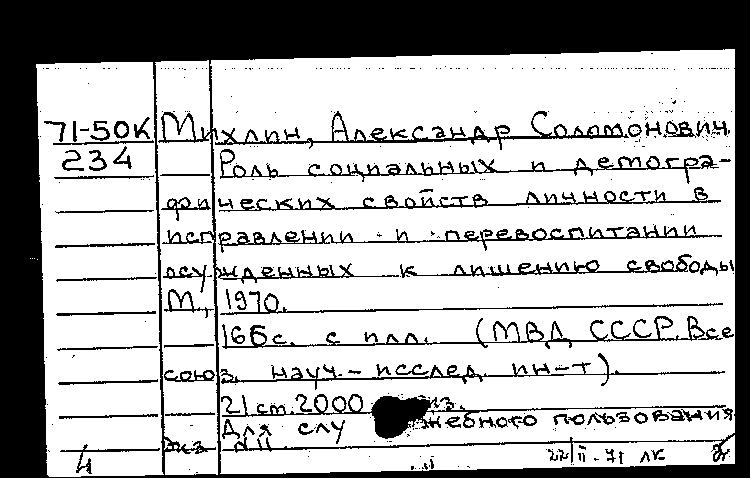 71-50К Михлин, Александр Соломонович
234 Роль социальных и демогра-
фических свойств личности в
исправлении и перевоспитании
осужденных к лишению свободы
М., 1970.
166с. с илл. (МВД СССР. Все
союз. науч.-исслед. ин-т).
21 см. 2000 экз.
Для слу жебного пользования
экз N11
4 22/II-71 ЛК